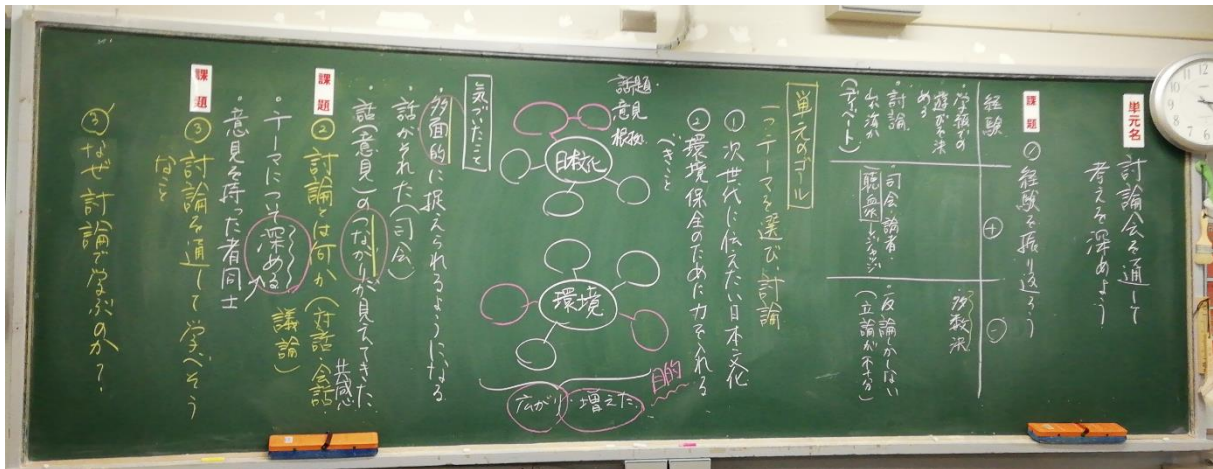 単元名
討論会を通して
考えを深めよう
課題
① 経験を振り返ろう
経験
＋
－
・学級での
遊びを決
める
・討論
(ディベート)
・司会・論者・
聴衆
多数決
・反論しかしない
(立論が不十分)
単元のゴール
一つテーマを選び、討論
① 次世代に伝えたい日本文化
② 環境保全のために力を入れる
べきこと
話題
意見
根拠
日本文化
環境
目的
広がり
増えた
気づいたこと
・多面的に捉えられるようになる
・話がそれた(司会)
・話(意見)のつながりが見えてきた
共感
課題
② 討論とは何か (対話・会話・
議論)
・テーマについて深める
・意見を持った者同士
課題
③ 討論を通して学べそう
なこと
③ なぜ討論で学ぶのか?